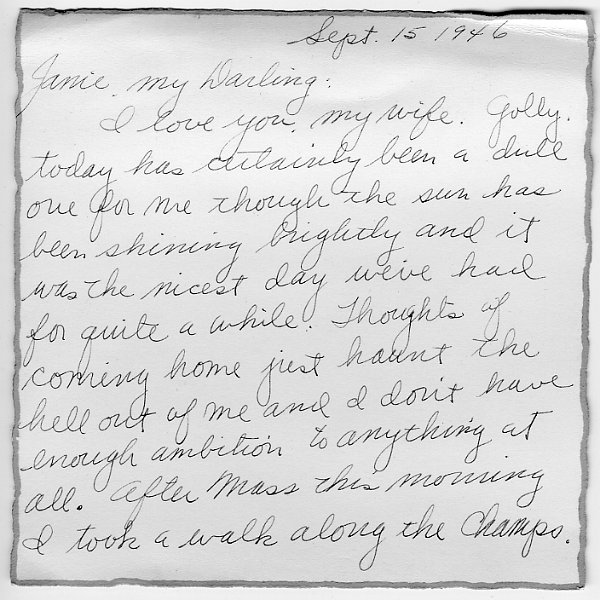 Sept. 15 1946
Janie, my Darling:
I love you, my wife. Golly,
today has certainly been a dull
one for me though the sun has
been shining brightly and it
was the nicest day we've had
for quite a while. Thoughts of
coming home just haunt the
hell out of me and I don't have
enough ambition to anything at
all. After Mass this morning
I took a walk along the Champs.